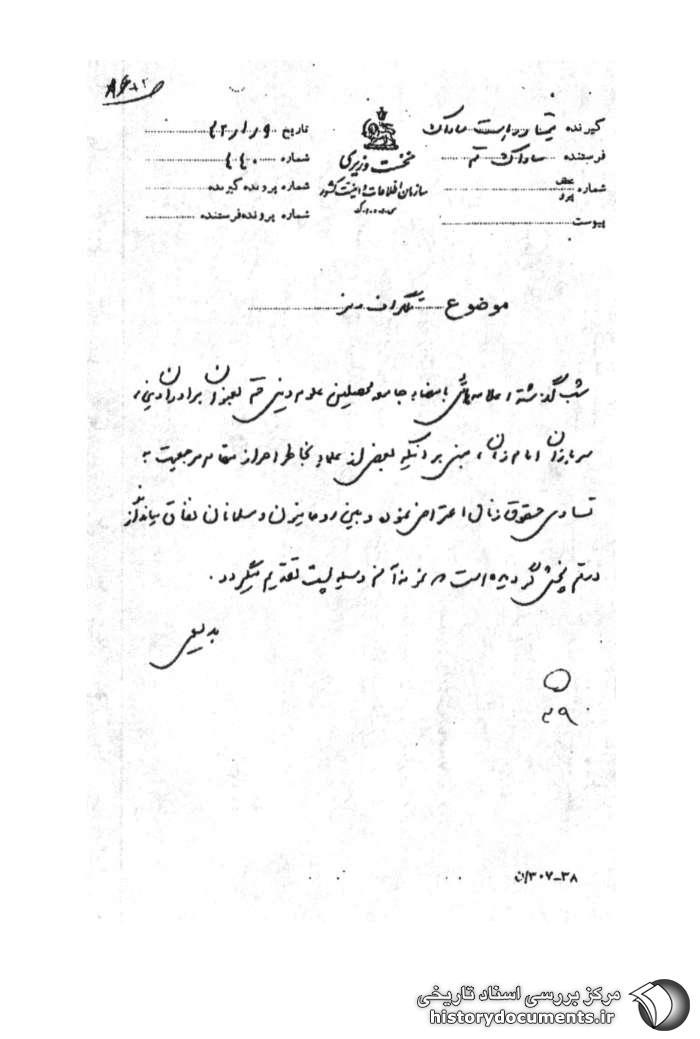 گیرنده تیمسار ریاست ساواک
فرستنده ساواک قم
شماره عطف پیرو
پیوست
نخست وزیری
سازمان اطلاعات و امنیت کشور
س.ا.و.ا.ک
تاریخ ۹ ر ۱ ر ۴۲
شماره ۴۴۰
شماره پرونده گیرنده
شماره پرونده فرستنده
موضوع تلگراف رمز
شب گذشته اعلامیه‌هائی بامضاء جامعه محصلین علوم دینی قم بعنوان برادران دینی،
سربازان امام زمان، مبنی بر اینکه بعضی از علماء بخاطر احراز مقام مرجعیت به
تساوی حقوق زنان اعتراض نموده و بین روحانیون و مسلمانان نفاق بیاندازند
در قم پخش گردیده است نمونه آن وسیله پست تقدیم میگردد.
بدیعی
۲۹
۳۸-۳۰۷/ن
مرکز بررسی اسناد تاریخی
historydocuments.ir